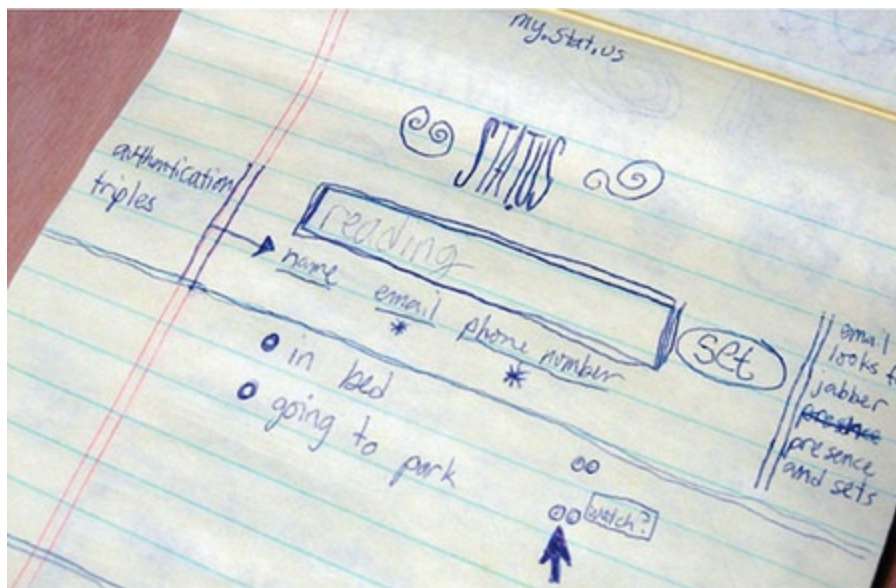 my.stat.us
STAT.US
authentication
triples
reading
name email phone number
* *
set
in bed
going to park
watch?
email
looks t
jabber
presence
presence
and sets